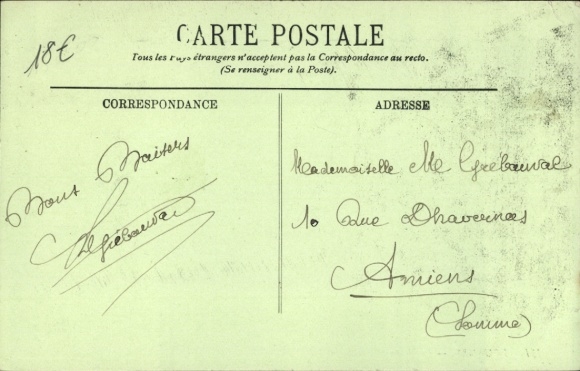 18€
CARTE POSTALE
Tous les Pays étrangers n'acceptent pas la Correspondance au recto.
(Se renseigner à la Poste).
CORRESPONDANCE
ADRESSE
Bons Baisers
Grébauval
Mademoiselle M Grébauval
10 Rue Dhavernas
Amiens
(Somme)